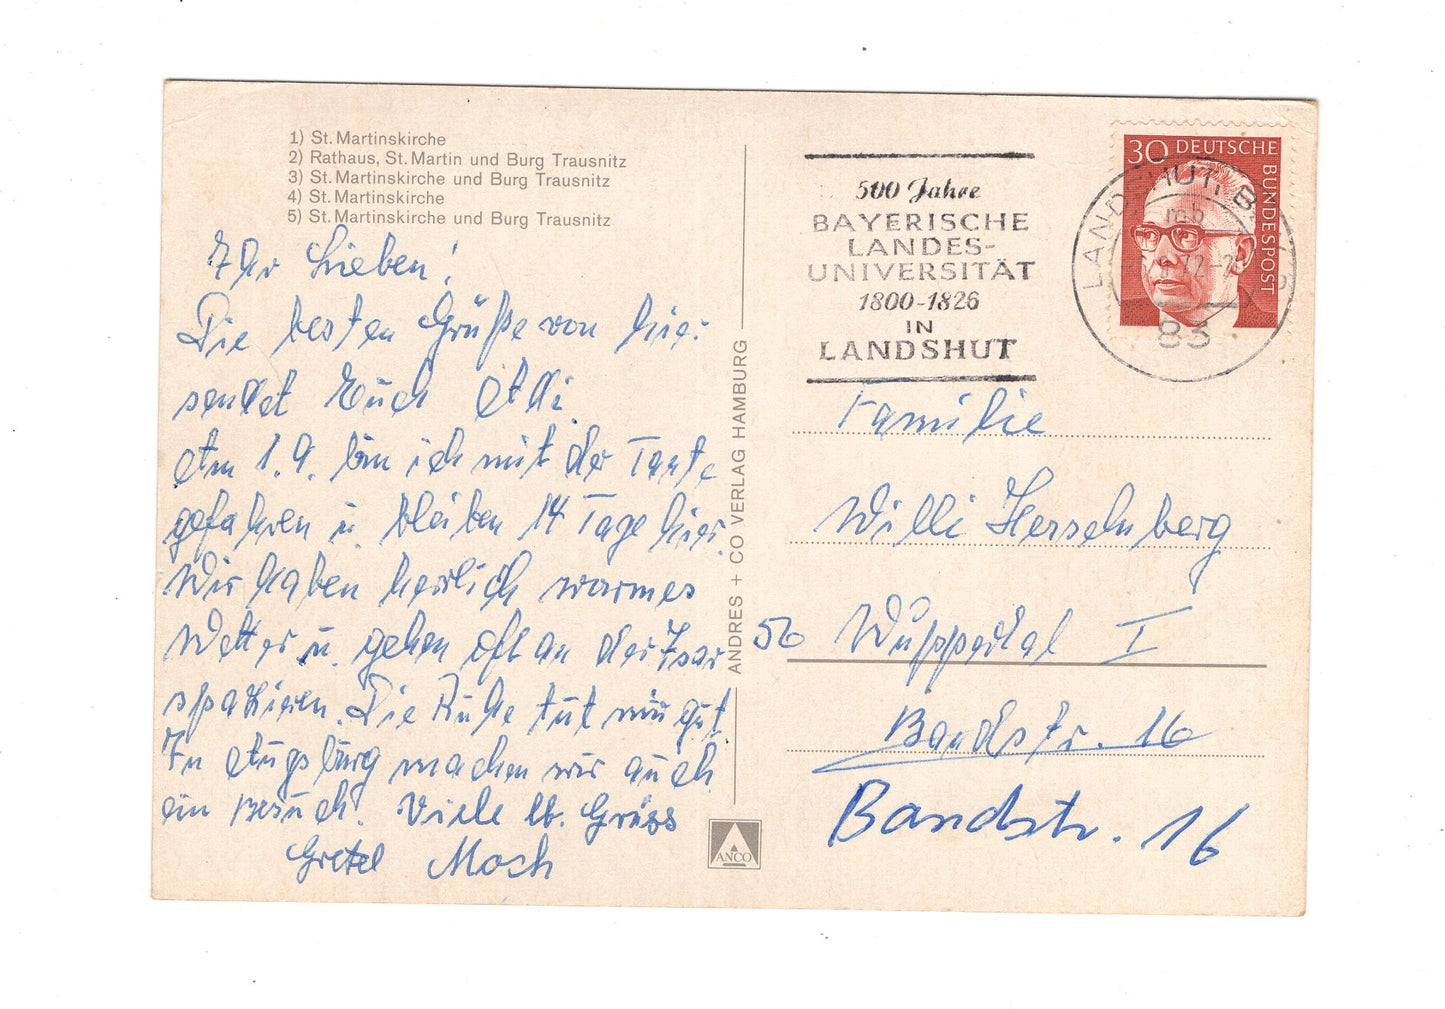 1) St. Martinskirche
2) Rathaus, St. Martin und Burg Trausnitz
3) St. Martinskirche und Burg Trausnitz
4) St. Martinskirche
5) St. Martinskirche und Burg Trausnitz
Ihr Lieben!
Die besten Grüße von hier
sendet Euch
Am 1.9. bin ich mit der Tante
gefahren u. bleiben 14 Tage hier.
Wir haben herrlich warmes
Wetter u. gehen oft an der Isar
spazieren. Die Ruhe tut mir gut.
In Augsburg machen wir auch
ein Besuch. Viele lb. Grüss
Gretel Moch
ANDRES + CO VERLAG HAMBURG
ANCO
500 Jahre
BAYERISCHE
LANDES-
UNIVERSITÄT
1800-1826
IN
LANDSHUT
30 DEUTSCHE
BUNDESPOST
LANDSHUT, BAY
mb
72-2
83
Familie
Willi
56 Wuppertal I
Bandstr. 16
Bandstr. 16